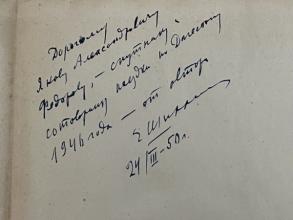 Дорогому
Якову Александровичу
Федорову, — спутнику,
сотоварищу поездки по Дагестану
1946 года — от автора
24/III-50 г.